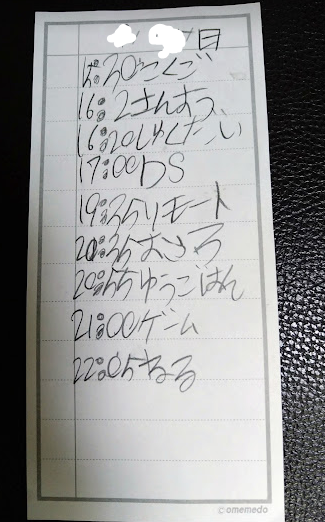 日
15:30こくご
16:2さんすう
16:20しゅくだい
17:00DS
19:35リモート
20:35おふろ
20:55ゆうごはん
21:00ゲーム
22:05ねる
©omemedo